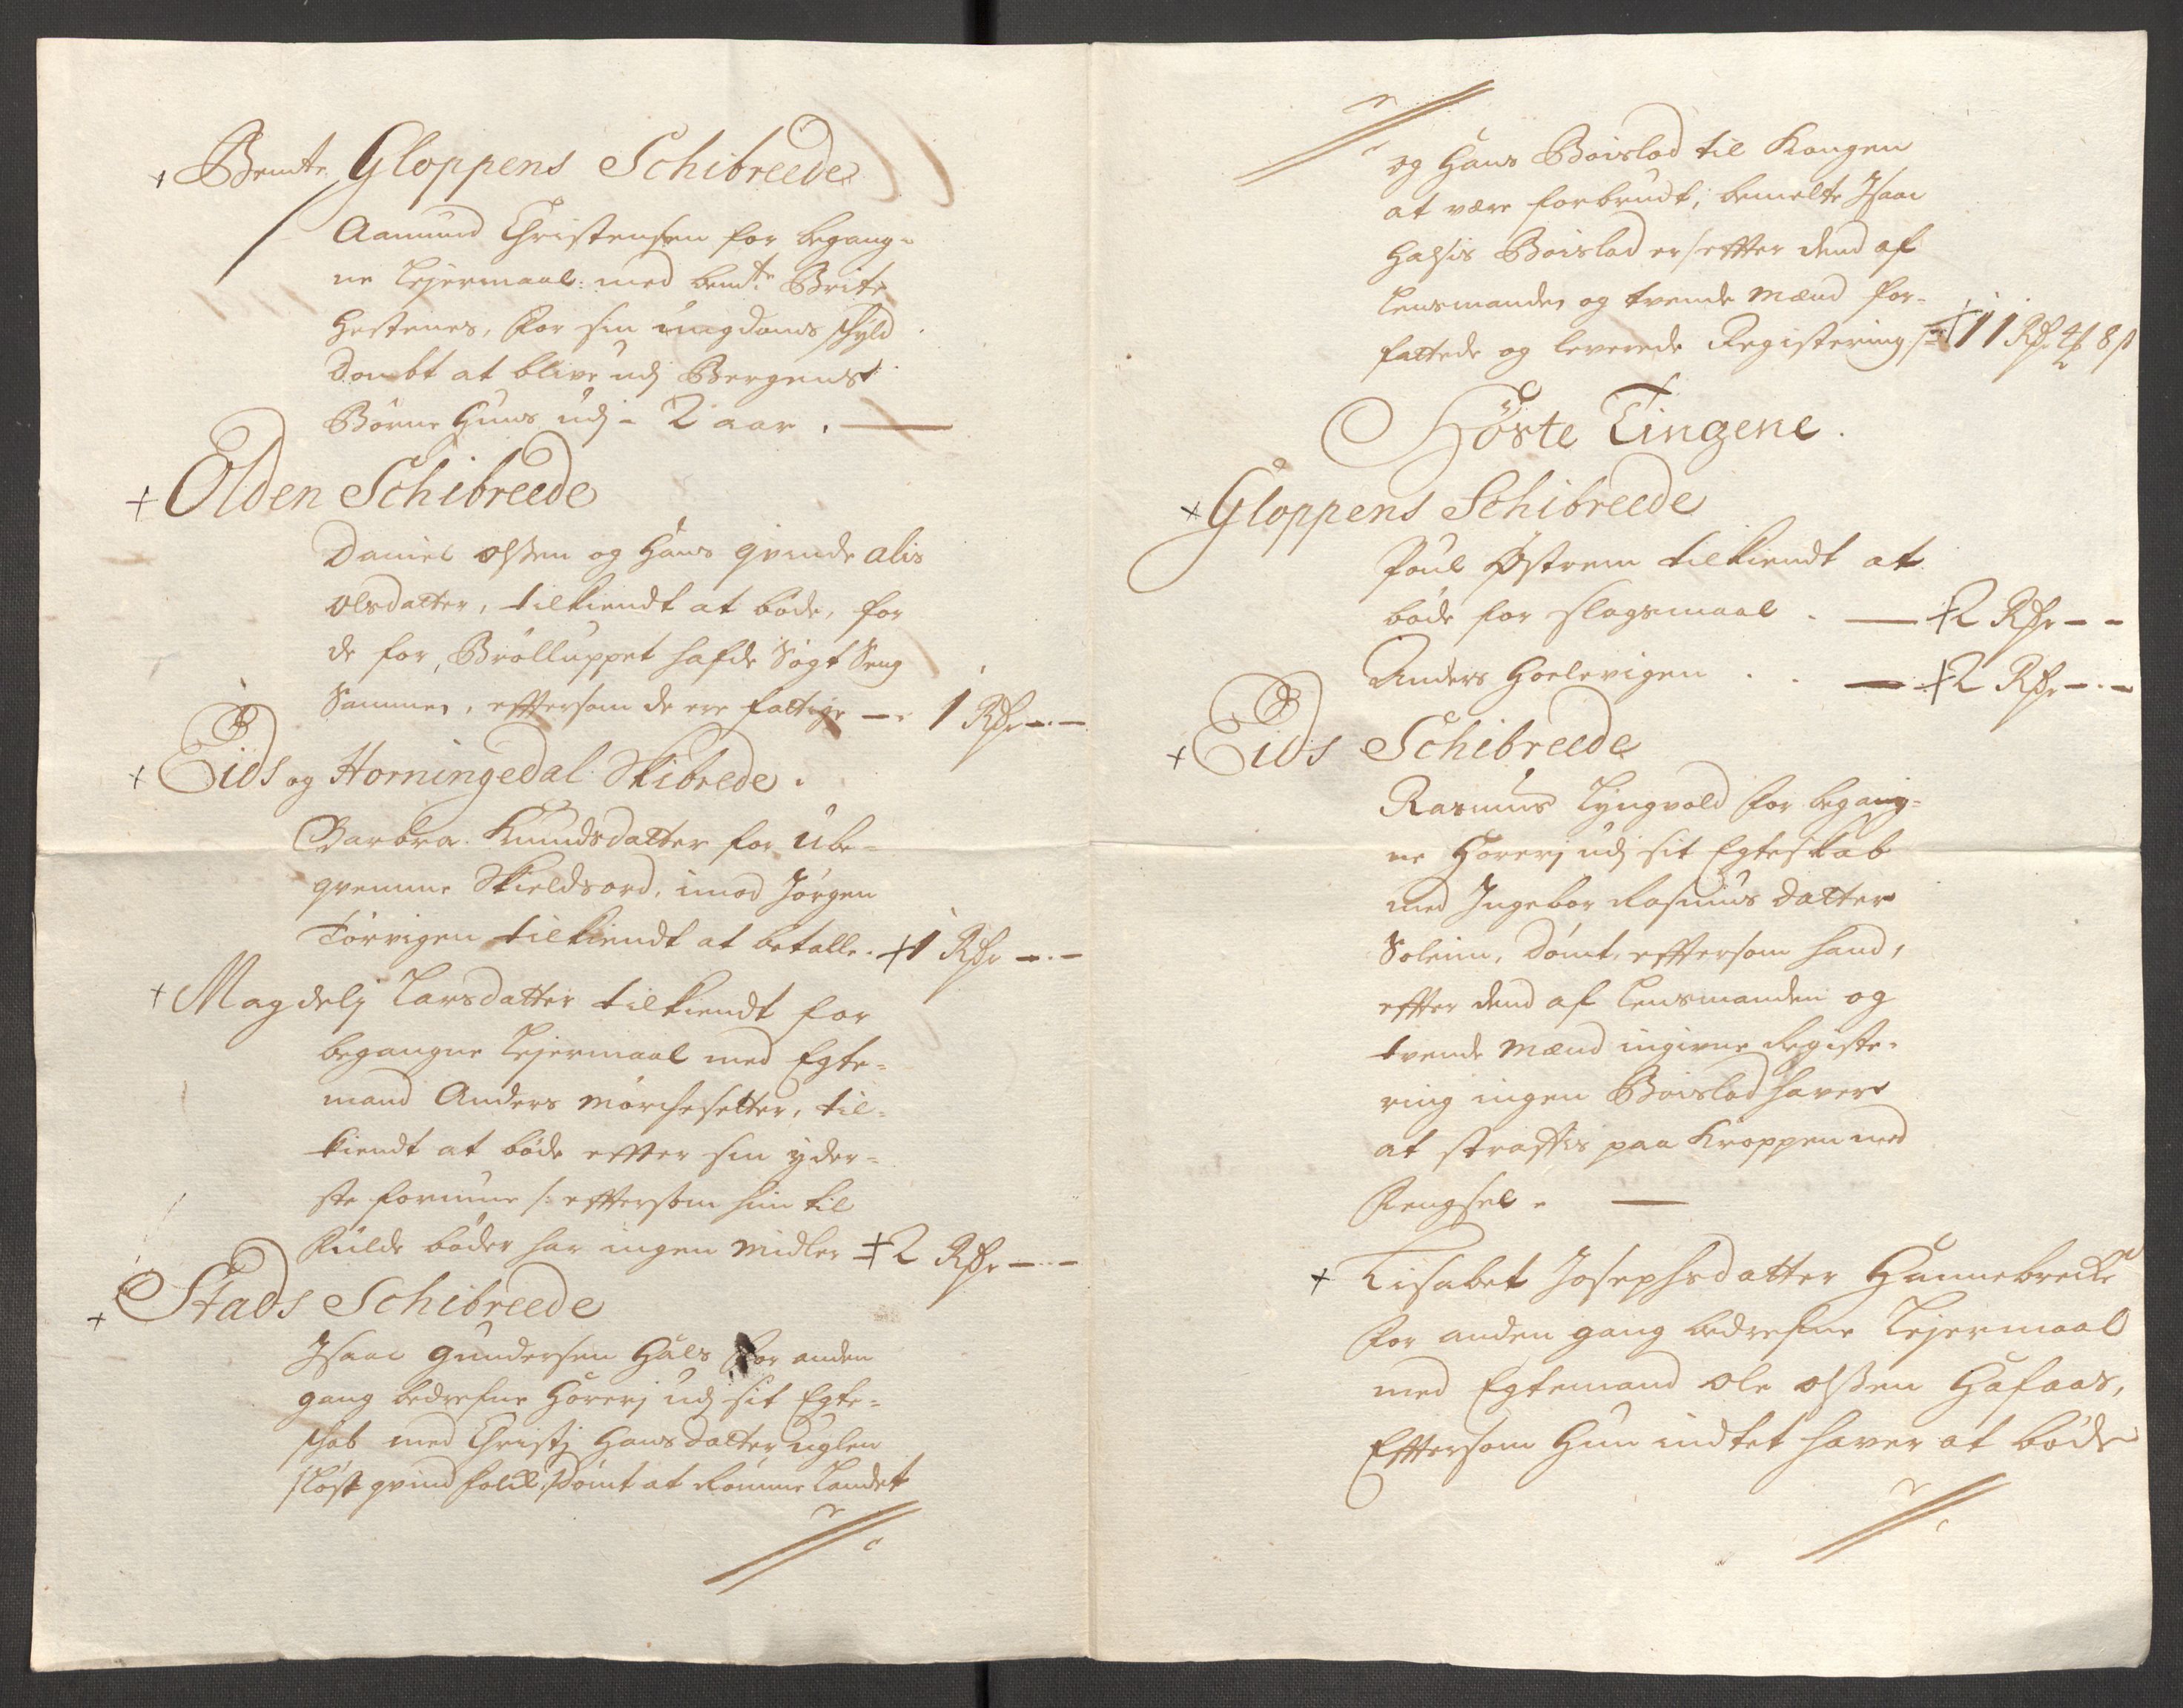 Bemte Gloppens Schibreede
Aamund Christensen for begang-
ne Leyermaal: med bemte Brite
Hestenes, for sin ungdoms skyld
Dømbt at blive udj Bergens
Børne Huus udj - 2 aar.
Olden Schibreede
Daniel Olßen og Hans qvinde Alis
Olsdatter, tilkiendt at bøde, for
de for, Brølluppet hafde Søgt Seng
Sammen, efftersom de ere fattige — 1 Rdr - -
Eids og Horningedal Skibrede.
Barbra Knudsdatter for Ube-
qvemme Skieldsord, imod Jørgen
Torvigen tilkiendt at betalle. 1 Rdr - -
Magdelj Larsdatter tilkiendt for
begangne Lejermaal med Egte-
mand Anders Mørchesetter, til-
kiendt at bøde effter sin yder-
ste formue /: efftersom hun til
fulde bøder har ingen Midler 2 Rdr - -
Stads Schibreede
Isaac Gundersen Hals for anden
gang bedrefne Horerj udj sit Egte-
schab med Christj Hansdatter Uglen
/:løst qvindfolk:/ Dømt at Rømme Landet
og Hans Boislod til Kongen
at være forbrudt, bemelte Isaac
Halsis Boislod er /effter dend af
Lensmanden og tvende Mænd for-
fattede og leverede Registering/ 11 Rdr 4 8 s
Høste Tingene.
Gloppens Schibreede
Poul Østrem tilkiendt at
bøde for slagsmaal . — 2 Rdr - -
Anders Hoelevigen . . — 2 Rdr - -
Eids Schibreede
Rasmus Lyngvold for begang-
ne Horerj udj sit Egteskab
med Ingebor Rasmus datter
Soleim, dømt, efftersom hand,
effter dend af Lensmanden og
tvende Mænd ingivne Registe-
ring ingen Boislod haver
at straffis paa Kroppen med
Fengsel. —
Lisabet Josephsdatter Hunnebrecke
for anden gang bedrefne Lejermaal
med Egtemand Ole Olßen Hafaas,
Efftersom Hun indtet haver at bøde